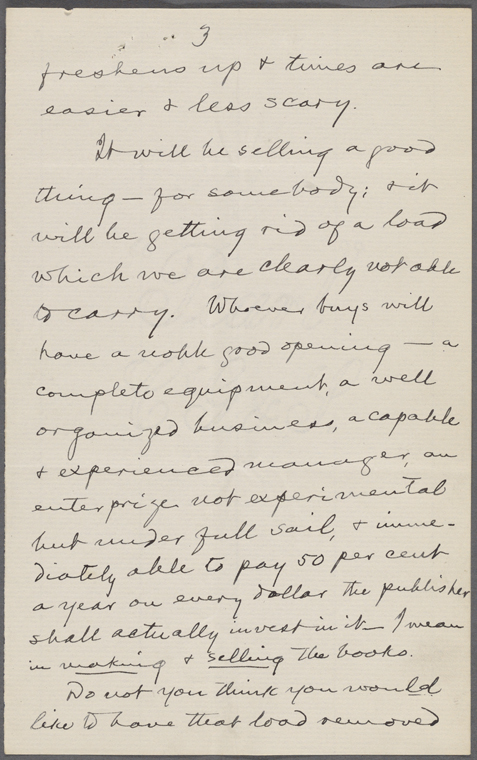 3
freshens up & times are
easier & less scary.
It will be selling a good
thing — for somebody; & it
will be getting rid of a load
which we are clearly not able
to carry. Whoever buys will
have a noble good opening — a
complete equipment, a well
organized business, a capable
& experienced manager, an
enterprize not experimental
but under full sail, & imme-
diately able to pay 50 per cent
a year on every dollar the publisher
shall actually invest in it — I mean
in making & selling the books.
Do not you think you would
like to have that load removed